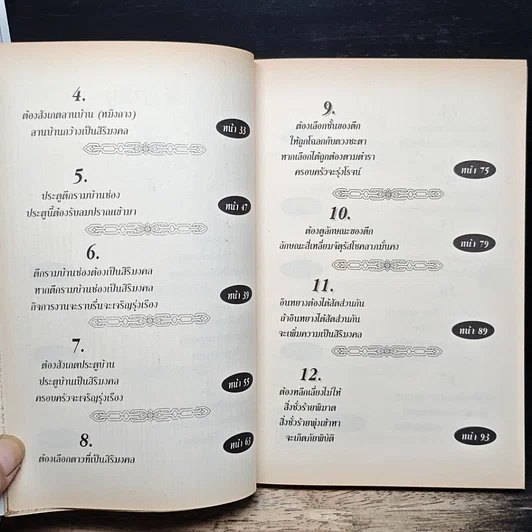 4.
ต้องสังเกตลานบ้าน (หมิงถาง)
ลานบ้านกว้างเป็นสิริมงคล
หน้า 33
5.
ประตูตึกรามบ้านช่อง
ประตูนี้ต้องรับลมปราณเข้ามา
หน้า 47
6.
ตึกรามบ้านช่องต้องเป็นสิริมงคล
หากตึกรามบ้านช่องเป็นสิริมงคล
กิจการงานจะราบรื่นจะเจริญรุ่งเรือง
หน้า 39
7.
ต้องสังเกตประตูบ้าน
ประตูบ้านเป็นสิริมงคล
ครอบครัวจะเจริญรุ่งเรือง
หน้า 55
8.
ต้องเลือกดาวที่เป็นสิริมงคล
หน้า 63
9.
ต้องเลือกชั้นของตึก
ให้ถูกโฉลกกับดวงชะตา
หากเลือกได้ถูกต้องตามตำรา
ครอบครัวจะรุ่งโรจน์
หน้า 75
10.
ต้องดูลักษณะของตึก
ลักษณะสี่เหลี่ยมจัตุรัสโชคลาภมั่นคง
หน้า 79
11.
อินหยางต้องได้สัดส่วนกัน
ถ้าอินหยางได้สัดส่วนกัน
จะเพิ่มความเป็นสิริมงคล
หน้า 89
12.
ต้องหลีกเลี่ยงไม่ให้
สิ่งชั่วร้ายพิฆาต
สิ่งชั่วร้ายพุ่งเข้าหา
จะเกิดภัยพิบัติ
หน้า 93